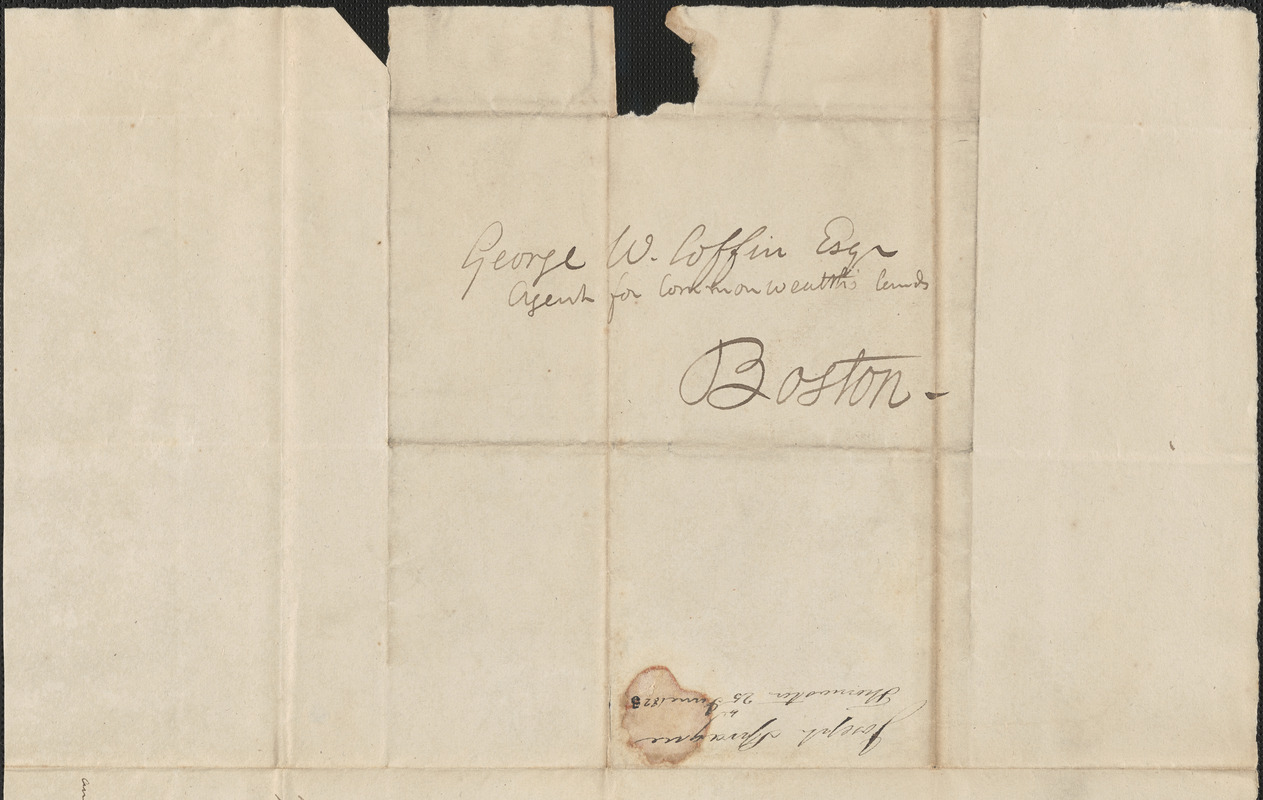 George W. Coffin Esqr
Agent for Commonwealth's lands
Boston -
Joseph Sprague
Thomaston 25 June 1828